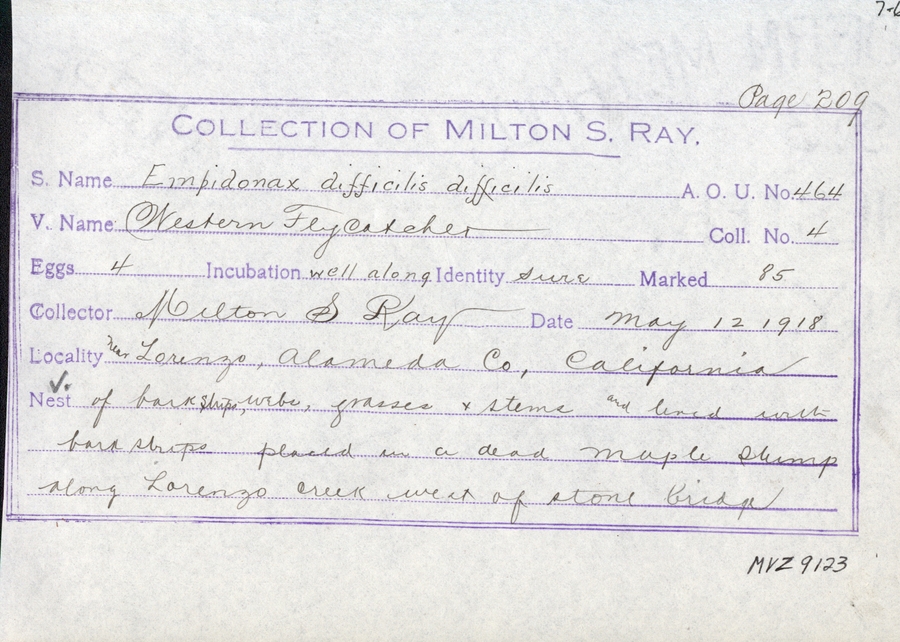 7-6
Page 209
COLLECTION OF MILTON S. RAY.
S. Name Empidonax difficilis difficilis A. O. U. No. 464
V. Name Western Flycatcher Coll. No. 4
Eggs 4 Incubation well along Identity sure Marked 85
Collector Milton S Ray Date May 12 1918
Locality near Lorenzo, Alameda Co, California
✓.
Nest of bark strips, webs, grasses + stems and lined with
bark strips placed in a dead maple stump
along Lorenzo creek west of stone bridge
MVZ 9123